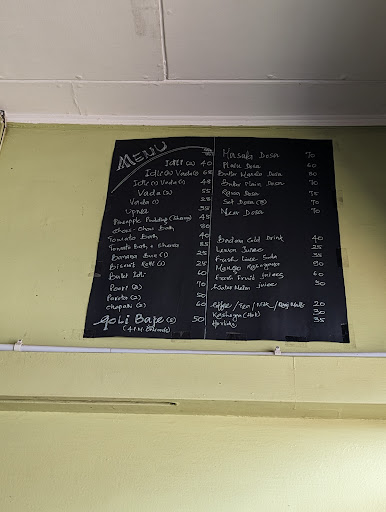 MENU
Idli (2) 40
Idli (2) Vada (1) 65
Idli (1) Vada (1) 45
Vada (2) 55
Vada (1) 28
Upma 35
Pineapple Pudding (Sheera) 45
Chow-Chow Bath 80
Tomato Bath 40
Tomato Bath & Sheera
Banana Bun (1) 25
Biscuit Rotti (1) 25
Bullet Idli 60
Poori (2) 70
Parota (2) 50
Chapati (2) 60
Goli Baje (5) 50
(4 P.M. Onwards)
Masala Dosa 70
Plain Dosa 60
Butter Masala Dosa 80
Butter Plain Dosa 70
Rava Dosa 75
Set Dosa (2) 70
Neer Dosa 70
Badam Cold Drink 40
Lemon Juice 25
Fresh Lime Soda 35
Mango 50
Fresh Fruit Juices 60
Water Melon Juice 50
Coffee / Tea / Milk / 20
Kashaya (Hot) 30
Horlicks 35